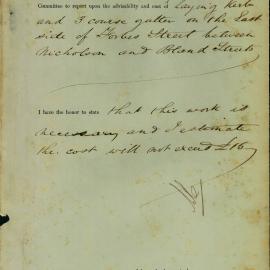 Committee to report upon the advisability and cost of laying kerb
and 3 course gutter on the East
side of Forbes Street between
Nicholson and Bland Streets
I have the honor to state that this work is
necessary and I estimate
the cost will not exceed £16